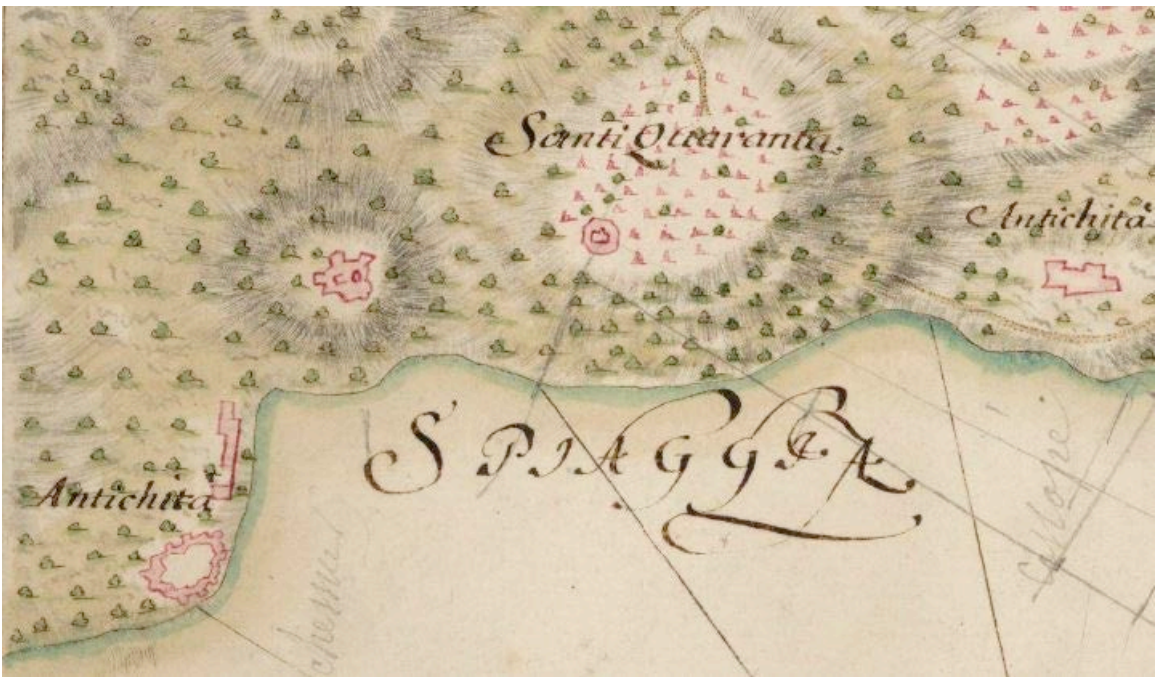 Santi Quaranta
Antichità
SPIAGGIA
Antichità